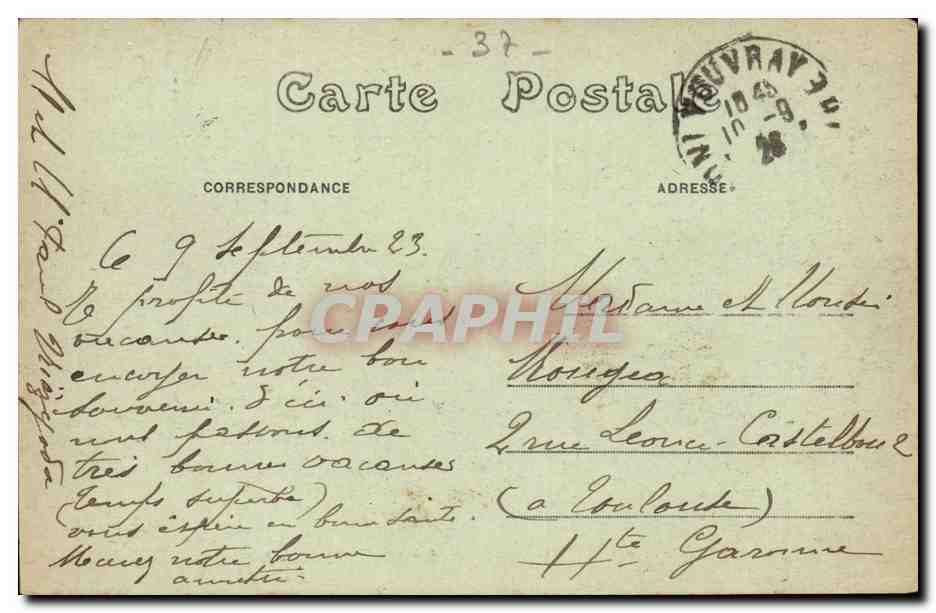 - 37 -
Carte Postale
VOUVRAY
18 45
10 -9
CORRESPONDANCE
ADRESSE
Le 9 Septembre 23.
Je profite de nos
vacances pour vous
envoyer notre bon
souvenir. d'ici où
nous passons de
très bonnes vacances
(temps superbe)
vous espère en bonne santé.
notre bonne
amitié.
Madame et
2 rue Leonce-Castelbou 2
(a Toulouse)
Hte Garonne
CRAPHIL